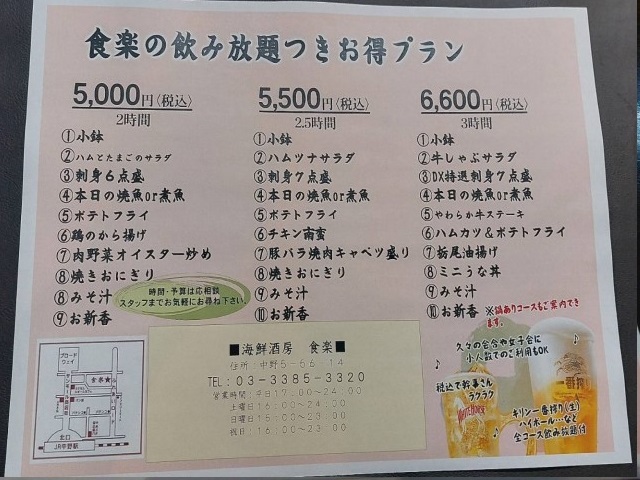 食楽の飲み放題つきお得プラン
5,000円(税込)
2時間
①小鉢
②ハムとたまごのサラダ
③刺身6点盛
④本日の焼魚or煮魚
⑤ポテトフライ
⑥鶏のから揚げ
⑦肉野菜オイスター炒め
⑧焼きおにぎり
⑧みそ汁
⑨お新香
5,500円(税込)
2.5時間
①小鉢
②ハムツナサラダ
③刺身7点盛
④本日の焼魚or煮魚
⑤ポテトフライ
⑥チキン南蛮
⑦豚バラ焼肉キャベツ盛り
⑧焼きおにぎり
⑨みそ汁
⑩お新香
6,600円(税込)
3時間
①小鉢
②牛しゃぶサラダ
③DX特選刺身7点盛
④本日の焼魚or煮魚
⑤やわらか牛ステーキ
⑥ハムカツ&ポテトフライ
⑦栃尾油揚げ
⑧ミニうな丼
⑨みそ汁
⑩お新香
※鍋ありコースもご案内できます。
時間・予算は応相談
スタッフまでお気軽にお尋ね下さい。
■海鮮酒房 食楽■
住所:中野5-56-14
TEL:03-3385-3320
営業時間:平日17:00~24:00
土曜日16:00~24:00
日曜日15:00~23:00
祝日:16:00~23:00
久々の会合や女子会に
小人数でのご利用もOK
税込で幹事さん
ラクラク
キリン一番搾り(生)
ハイボール…など
全コース飲み放題付
一番搾り
WHITE HORSE
ブロード
ウェイ
食楽★
北口
JR中野駅